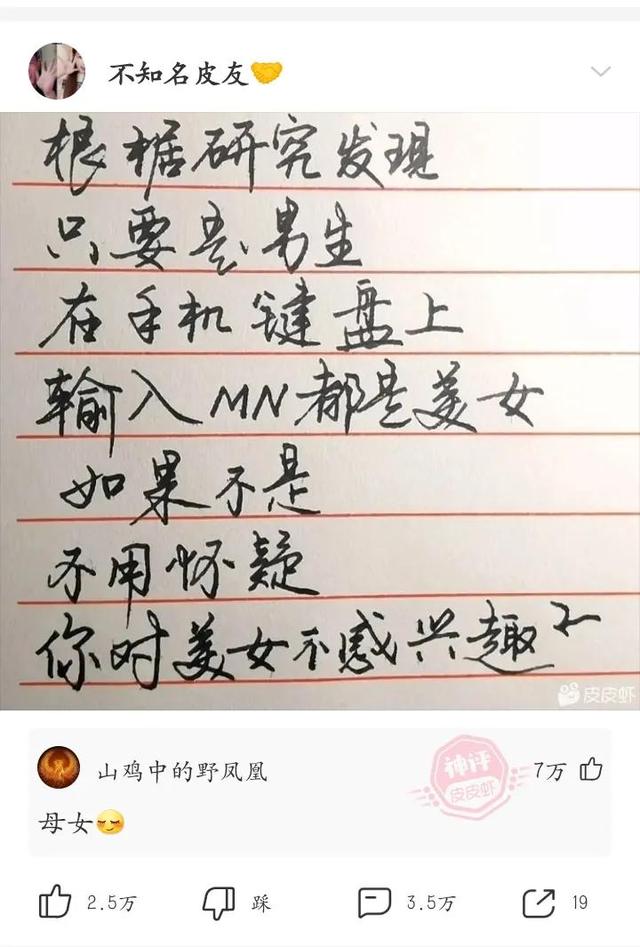 不知名皮友🤝
根椐研究发现
只要是男生
在手机键盘上
输入MN都是美女
如果不是
不用怀疑
你对美女不感兴趣
皮皮虾
山鸡中的野凤凰
神评
皮皮虾
7万
母女😌
2.5万
踩
3.5万
19